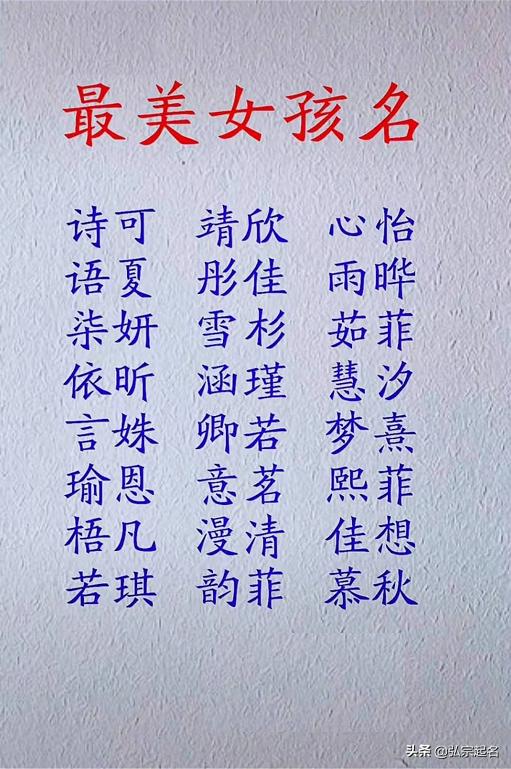 最美女孩名
诗可 靖欣 心怡
语夏 彤佳 雨晔
柒妍 雪杉 茹菲
依昕 涵瑾 慧汐
言姝 卿若 梦熹
瑜恩 意茗 熙菲
梧凡 漫清 佳想
若琪 韵菲 慕秋
头条 @弘宗起名